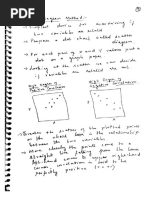 Diagram Method:-
Simplest device for ascertaining if
two variables are related
Prepare a dot chart called scatter
diagram
For each pair of X and Y values put a
dot on a graph paper
Looking at the scatter we can decide
if variables are related
High degree of
High degree of
Greater the scatter of the plotted points
on the chart lesser is the relationship
between the two variables
More closely the points come to a
straight line falling from the lower
left hand corner to upper right-hand
perfectly positive